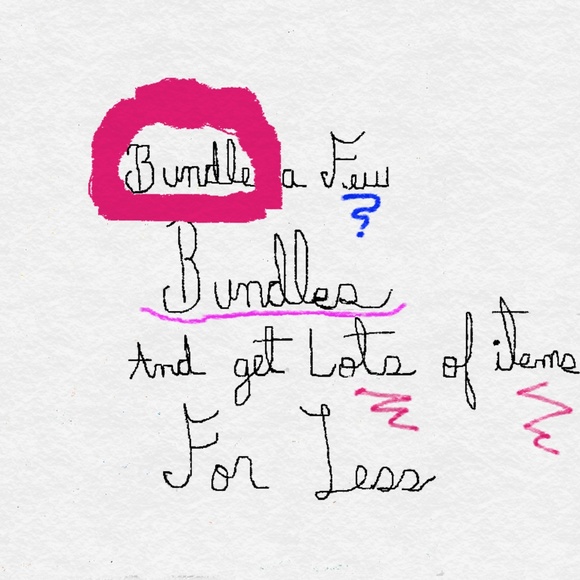 Bundle a Few
?
Bundles
And get Lots of items
For Less